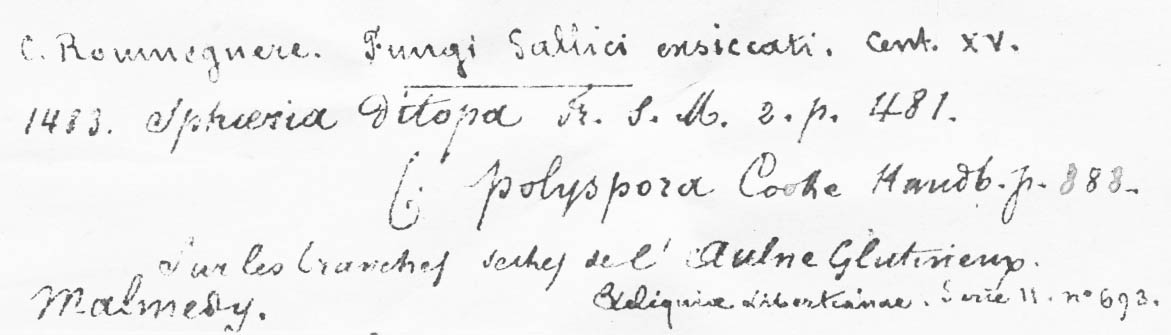 C. Roumeguere. Fungi Gallici exsiccati. Cent. XV.
1483. Sphæria Ditopa Fr. S. M. 2. p. 481.
polyspora Cooke Handb. p. 888.
Sur les branches seches de l'Aulne Glutineux.
Malmedy. Reliquiæ Libertianae. Serie II. no 693.